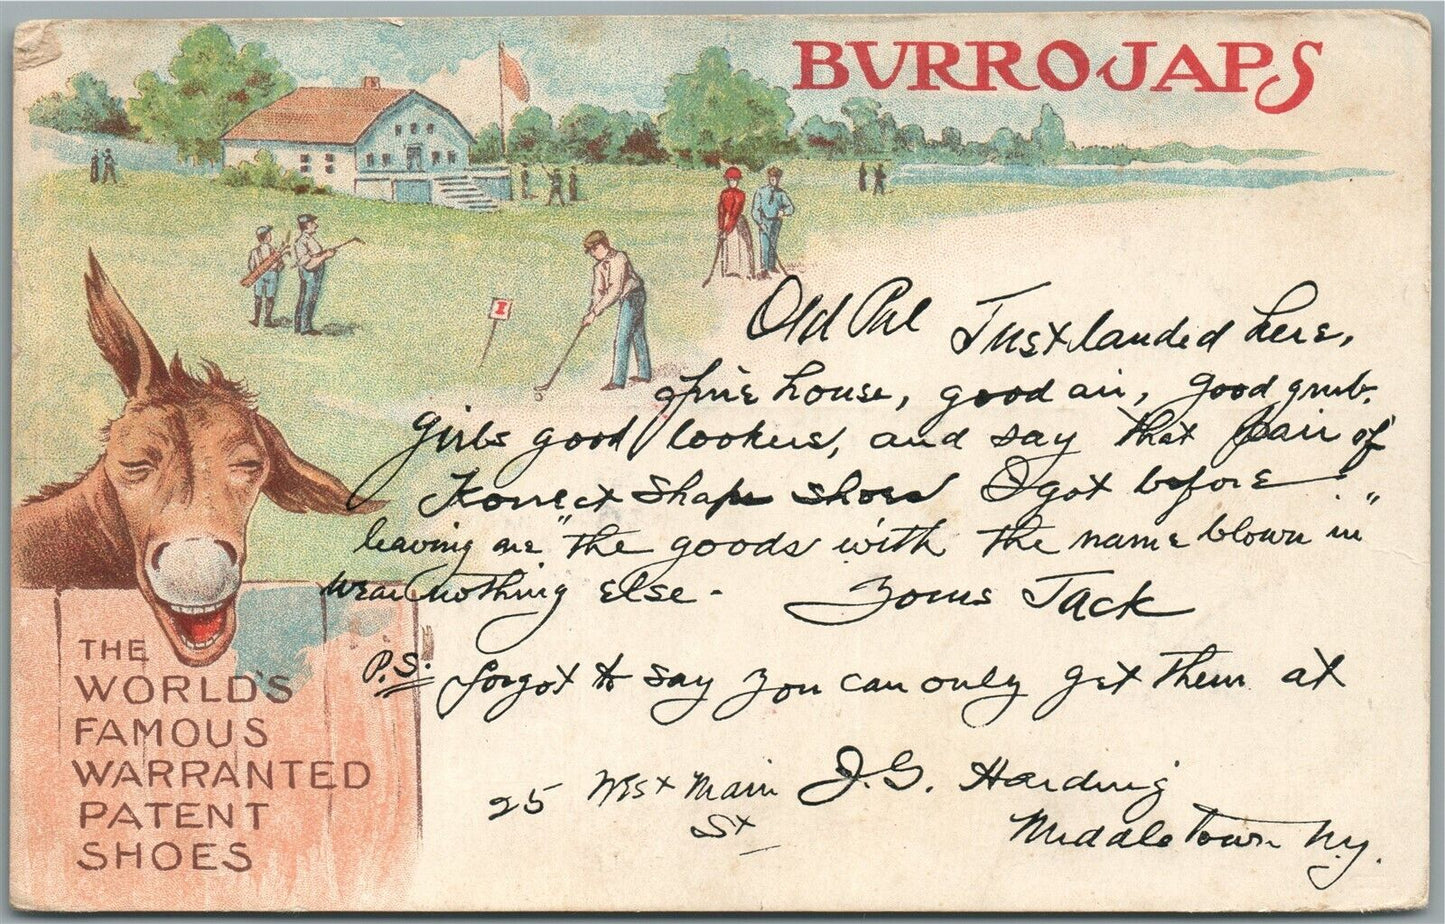 BURROJAPS
1
Old Pal Just landed here,
fine house, good air, good grub.
Girls good lookers, and say that pair of
Korrect Shape shoes I got before
leaving are "the goods with the name blown in"
wear nothing else - Yours Jack
P.S. forgot to say you can only get them at
25 West Main J.G. Harding
St
Middletown N.Y.
THE
WORLD'S
FAMOUS
WARRANTED
PATENT
SHOES